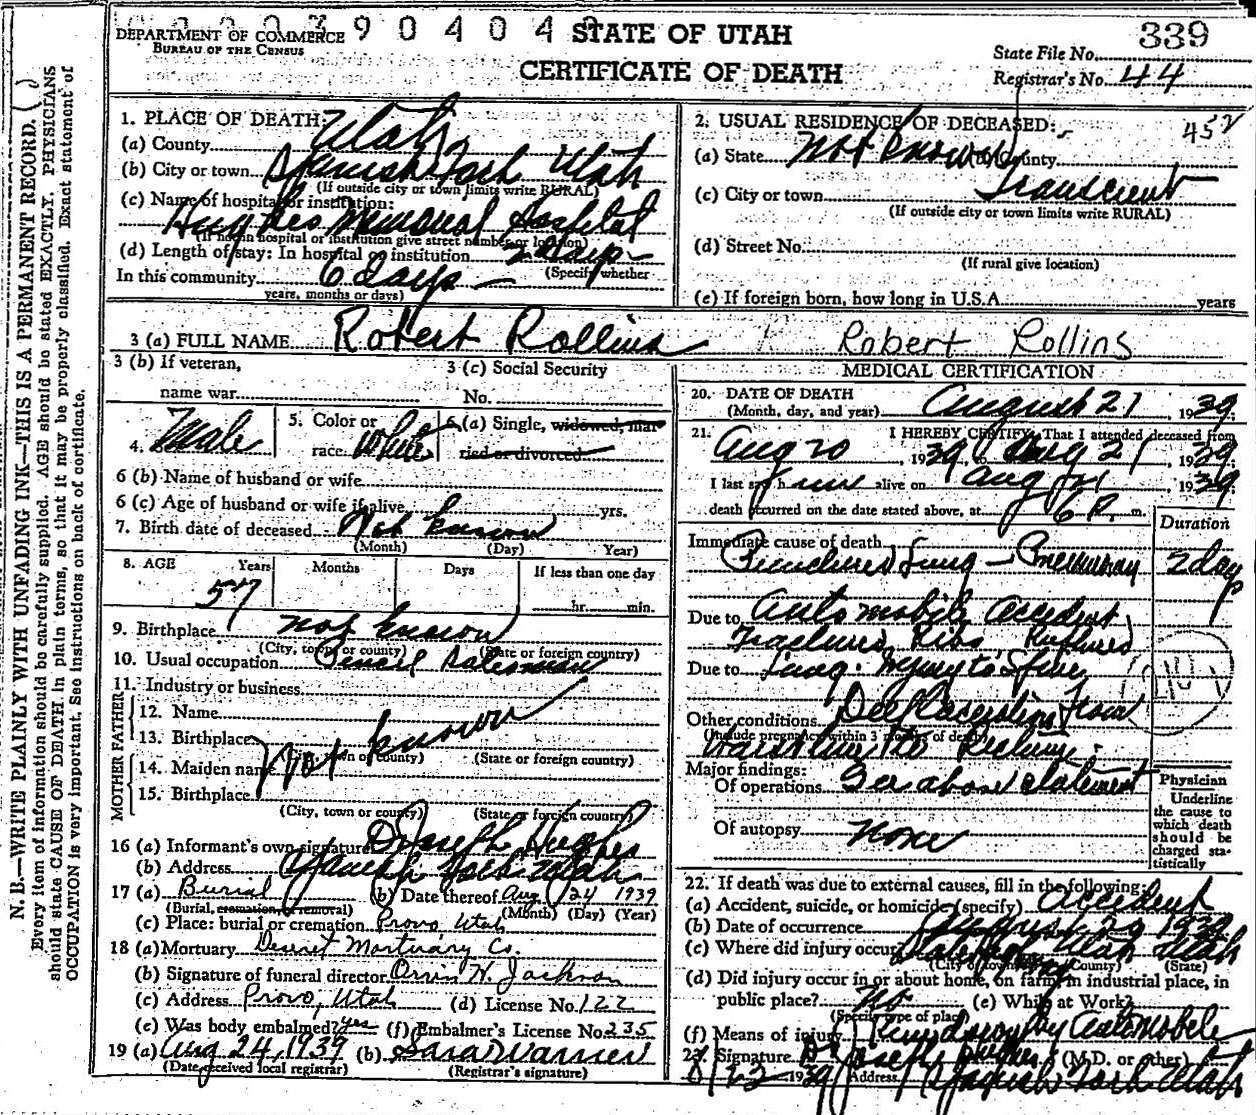 DEPARTMENT OF COMMERCE
BUREAU OF THE CENSUS
STATE OF UTAH
CERTIFICATE OF DEATH
339
State File No.
Registrar's No. 44
N. B.—WRITE PLAINLY WITH UNFADING INK—THIS IS A PERMANENT RECORD.
Every item of information should be carefully supplied. AGE should be stated EXACTLY. PHYSICIANS
should state CAUSE OF DEATH in plain terms, so that it may be properly classified. Exact statement of
OCCUPATION is very important. See instructions on back of certificate.
1. PLACE OF DEATH:
(a) County Utah
(b) City or town Spanish Fork Utah
(If outside city or town limits write RURAL)
(c) Name of hospital or institution:
Hughes Memorial Hospital
(If not in hospital or institution give street number or location)
(d) Length of stay: In hospital or institution 2 days
(Specify whether
In this community 6 days
years, months or days)
2. USUAL RESIDENCE OF DECEASED:
452
(a) State Not Known County
(c) City or town Transcient
(If outside city or town limits write RURAL)
(d) Street No.
(If rural give location)
(e) If foreign born, how long in U.S.A. years
3 (a) FULL NAME Robert Rollins Robert Rollins
3 (b) If veteran,
name war
3 (c) Social Security
No.
4. Male
5. Color or
race White
6 (a) Single, widowed, mar
ried or divorced
6 (b) Name of husband or wife
6 (c) Age of husband or wife if alive yrs.
7. Birth date of deceased Not known
(Month) (Day) Year)
8. AGE Years Months Days If less than one day
57 hr. min.
9. Birthplace not known
(City, town or county) (State or foreign country)
10. Usual occupation Pencil Salesman
11. Industry or business
FATHER
12. Name
13. Birthplace Not known
(City, town or county) (State or foreign country)
MOTHER
14. Maiden name
15. Birthplace
(City, town or county) (State or foreign country)
16 (a) Informant's own signature Dr Joseph Hughes
(b) Address Spanish Fork Utah
17 (a) Burial (b) Date thereof Aug. 24 1939
(Burial, cremation, or removal) (Month) (Day) (Year)
(c) Place: burial or cremation Provo, Utah
18 (a) Mortuary Deseret Mortuary Co.
(b) Signature of funeral director Orrin N. Jackson
(c) Address Provo, Utah (d) License No. 122
(e) Was body embalmed? yes (f) Embalmer's License No. 235
19 (a) Aug 24, 1939 (b) Sara Warner
(Date received local registrar) (Registrar's signature)
MEDICAL CERTIFICATION
20. DATE OF DEATH
(Month, day, and year) August 21, 1939.
21. I HEREBY CERTIFY, That I attended deceased from
Aug 20, 1939, to Aug 21, 1939.
I last saw him alive on Aug 21, 1939
death occurred on the date stated above, at 6 P. m.
Duration
Immediate cause of death
Punctured Lung — 2 days
Due to Automobile Accident
Fractured Ribs Ruptured
Due to Lung. Injury to Spine
Other conditions Deep Laceration from
(Include pregnancy within 3 months of death)
Waistline to Rectum.
Major findings:
Of operations See above statement
Of autopsy None
Physician
Underline
the cause to
which death
should be
charged sta-
tistically
22. If death was due to external causes, fill in the following:
(a) Accident, suicide, or homicide (specify) Accident
(b) Date of occurrence August 20 1939
(c) Where did injury occur Utah Utah
(City or town) (County) (State)
(d) Did injury occur in or about home, on farm, in industrial place, in
public place? No (e) While at Work?
(Specify type of place)
(f) Means of injury Run down by Automobile
23. Signature Dr Joseph Hughes (M.D. or other)
8/22 1939 Address Spanish Fork Utah